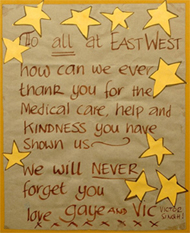 To all at EAST WEST
how can we ever
thank you for the
Medical care, help and
KINDNESS you have
shown us
We will NEVER
forget you
love gaye AND VIC
x x x x x x x x